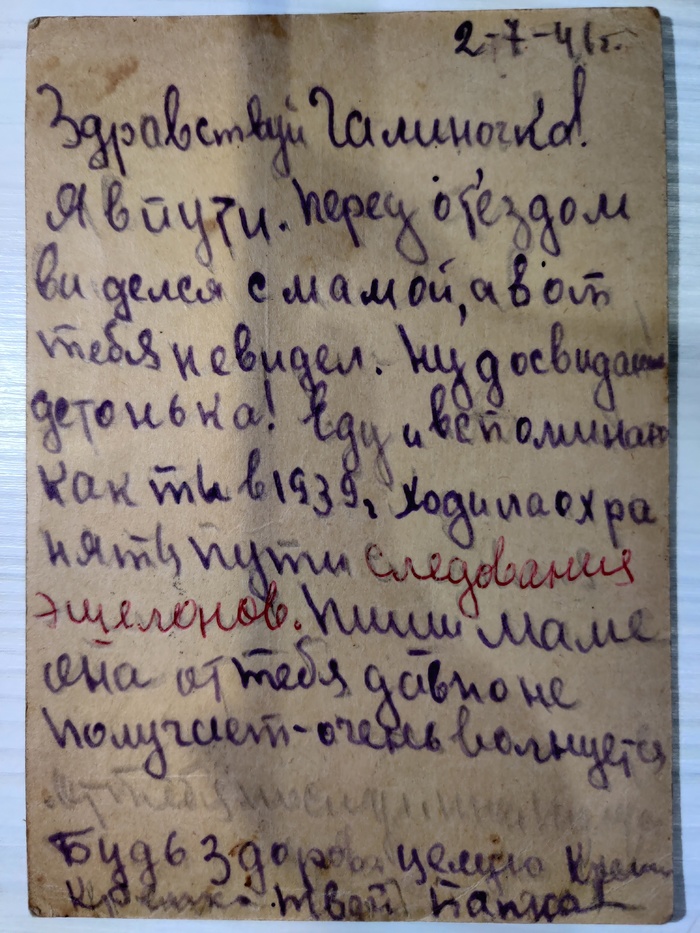 2-7-41г.
Здравствуй Галиночка!
Я в пути. Перед от'ездом
виделся с мамой, а вот
тебя не видел. Ну досвидания
детонька! Еду и вспоминаю
как ты в 1939г ходила охра
нять пути следования
эшелонов. Пиши маме
она от тебя давно не
получает - очень волнуется
От тебя
Будь здорова целую крепко
крепко. Твой папка